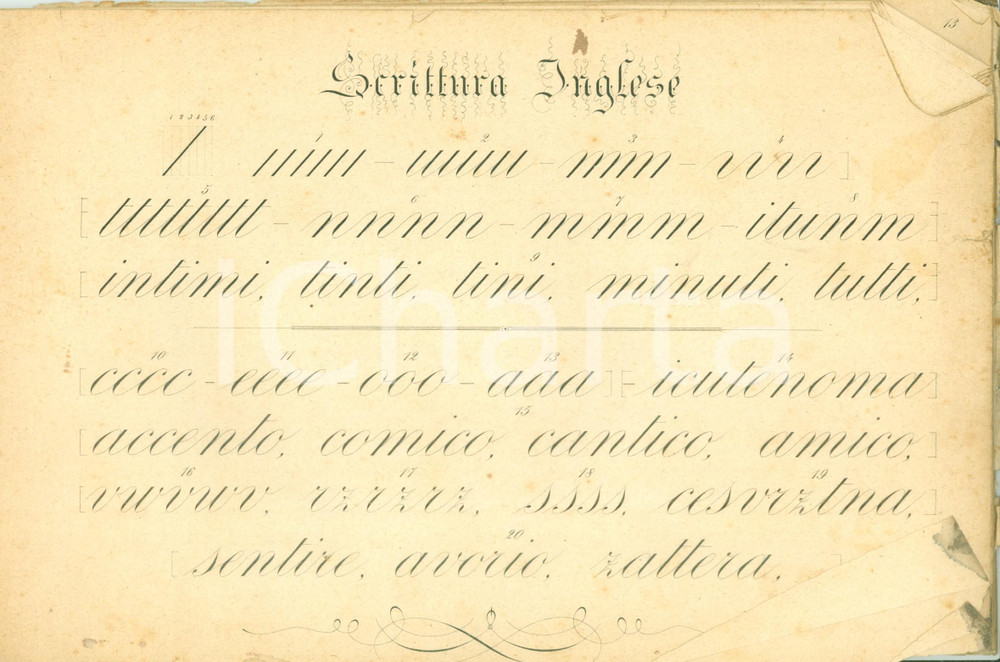 13
Scrittura Inglese
1 2 3 4 5 6
1 2 3 4
ıııııı – uuuu – mm – vvv
5 6 7 8
ttttttttt – nnnn – mmm – itunm
9
intimi, tinti, tini, minuti, tutti,
10 11 12 13 14
cccc – eeee – ooo – aaa icutenoma
15
accento, comico, cantico, amico,
16 17 18 19
vwvwv, rzrzrz, ssss, cesvrztna,
20
sentire, avorio, zattera.
iCharta